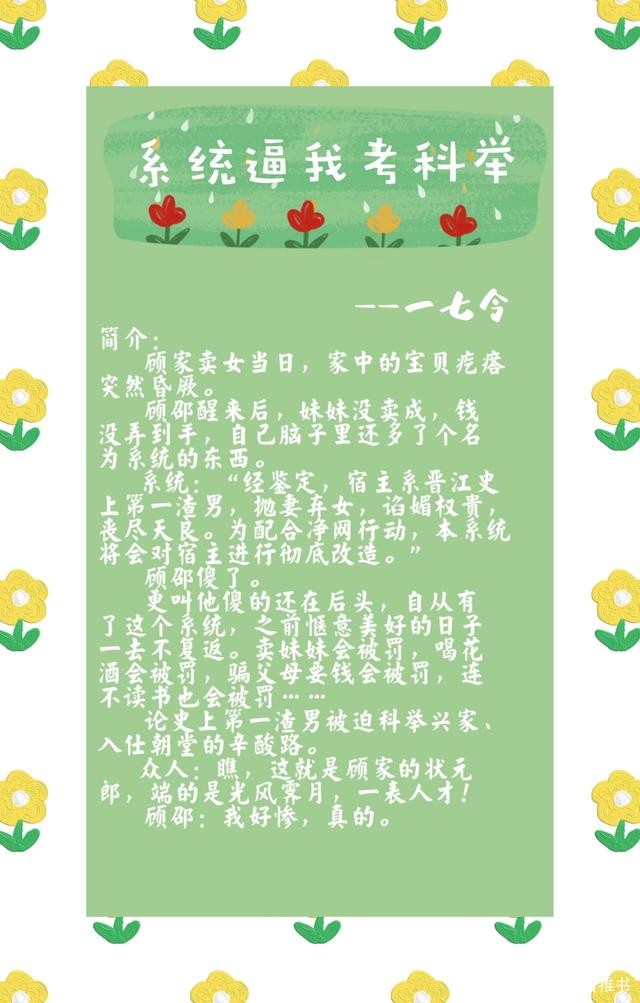 系统逼我考科举
——一七令
简介：
顾家卖女当日，家中的宝贝疙瘩
突然昏厥。
顾邵醒来后，妹妹没卖成，钱
没弄到手，自己脑子里还多了个名
为系统的东西。
系统：“经鉴定，宿主系晋江史
上第一渣男，抛妻弃女，谄媚权贵，
丧尽天良。为配合净网行动，本系统
将会对宿主进行彻底改造。”
顾邵傻了。
更叫他傻的还在后头，自从有
了这个系统，之前惬意美好的日子
一去不复返。卖妹妹会被罚，喝花
酒会被罚，骗父母要钱会被罚，连
不读书也会被罚……
论史上第一渣男被迫科举兴家、
入仕朝堂的辛酸路。
众人：瞧，这就是顾家的状元
郎，端的是光风霁月，一表人才！
顾邵：我好惨，真的。
推书